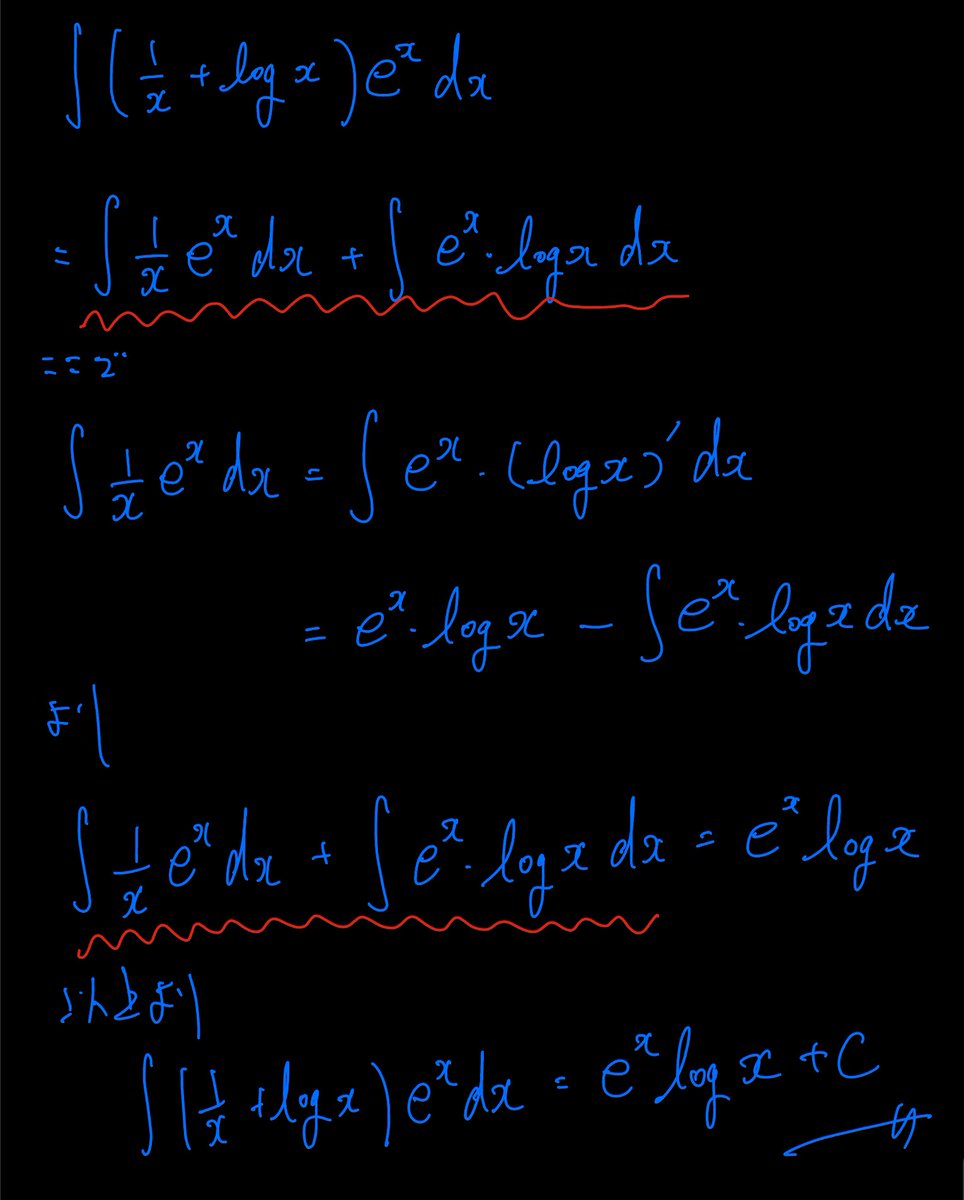 ∫(1/x + log x)e^x dx
= ∫ 1/x e^x dx + ∫ e^x・log x dx
ここで
∫ 1/x e^x dx = ∫ e^x・(log x)′ dx
= e^x・log x − ∫ e^x・log x dx
より
∫ 1/x e^x dx + ∫ e^x・log x dx = e^x log x
以上より
∫(1/x + log x)e^x dx = e^x log x + C